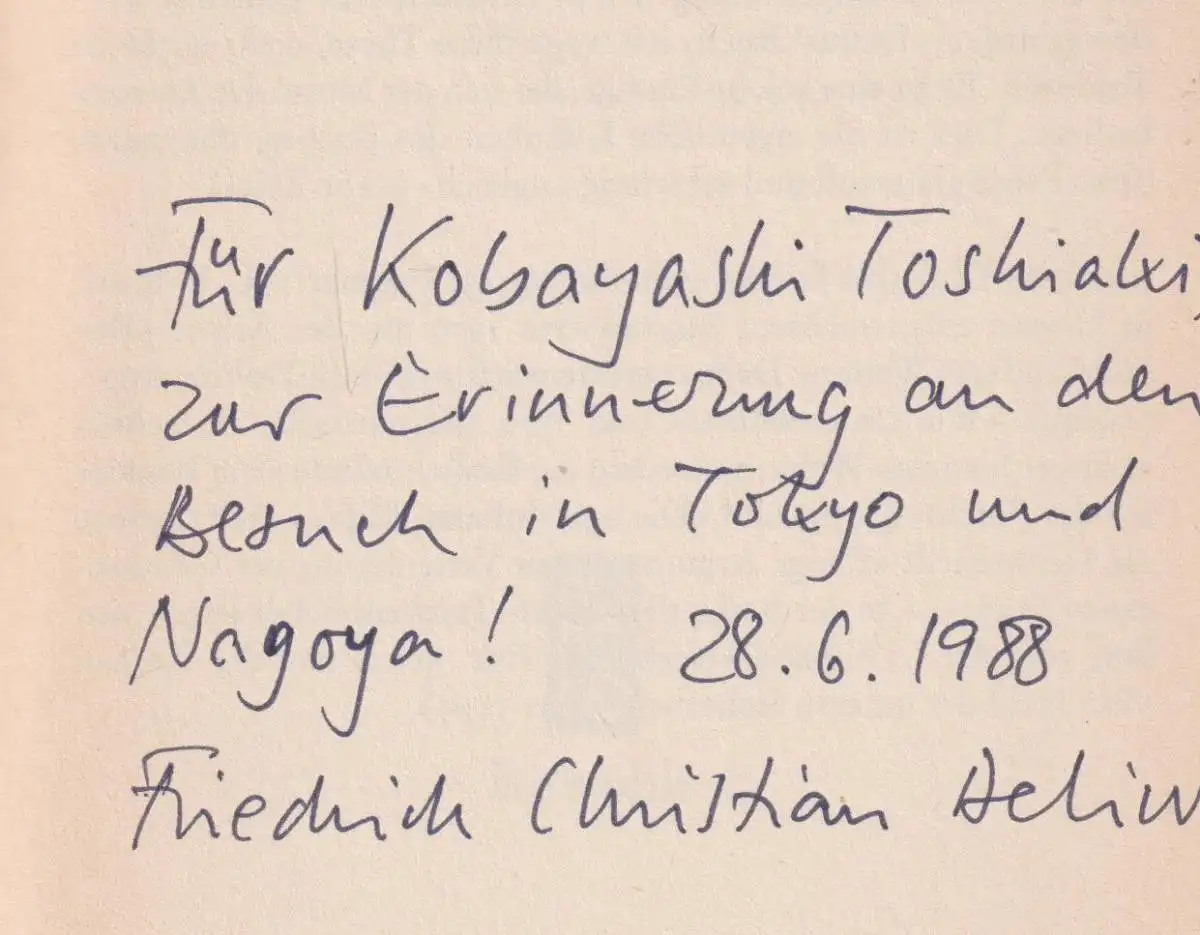 Für Kobayashi Toshiaki,
zur Erinnerung an den
Besuch in Tokyo und
Nagoya! 28.6.1988
Friedrich Christian Deliu